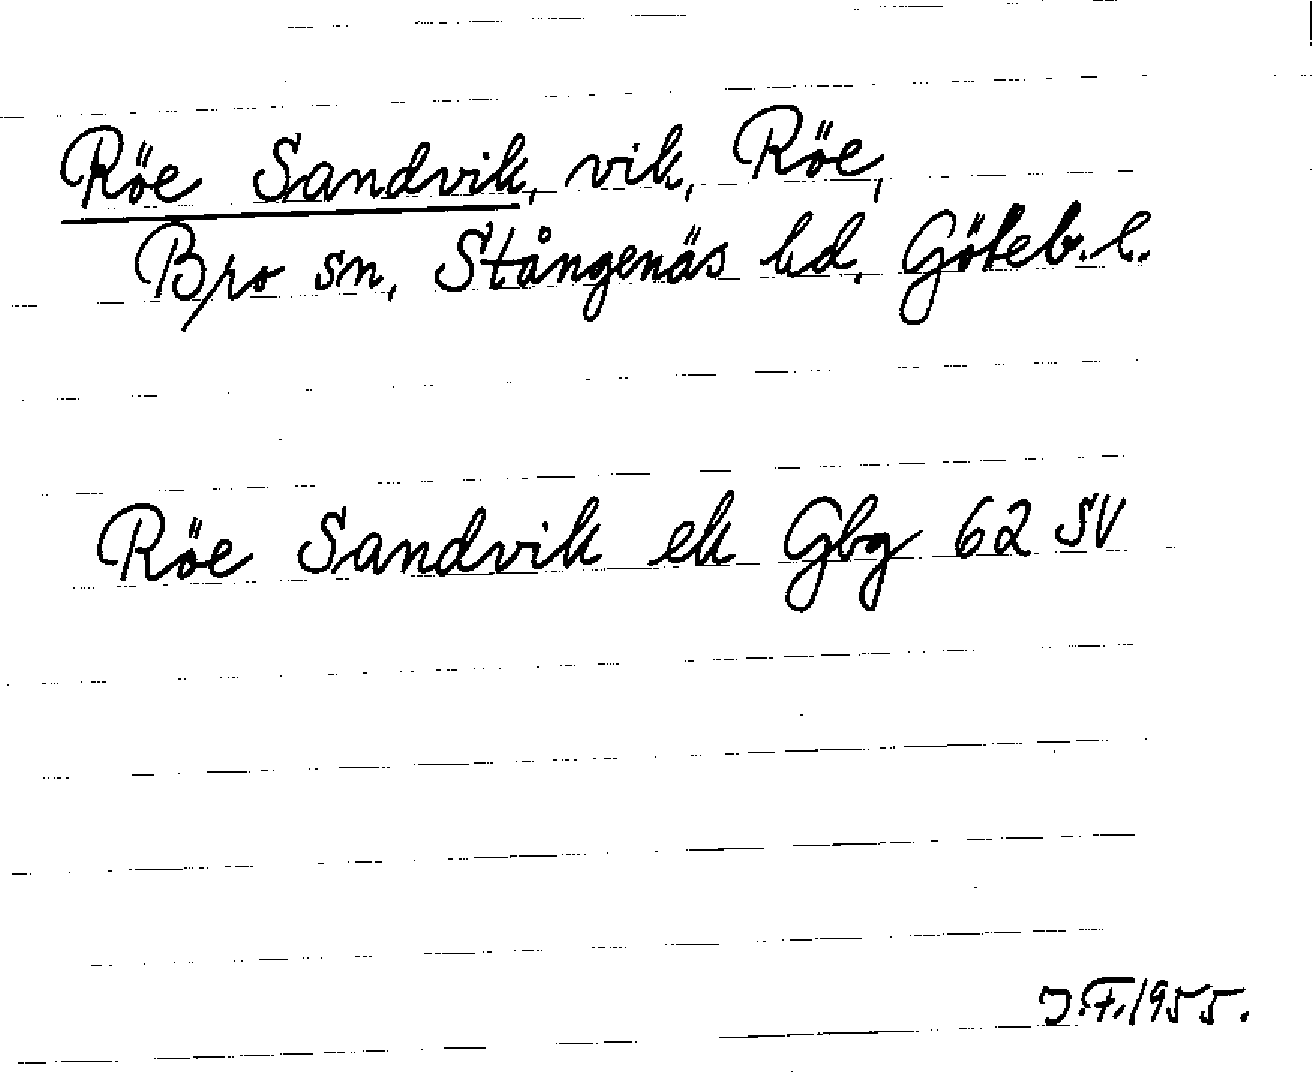 Röe Sandvik, vik, Röe,
Bro sn, Stångenäs hd. Göteb. l.
Röe Sandvik ek Gbg 62 SV
J.F. 1955.